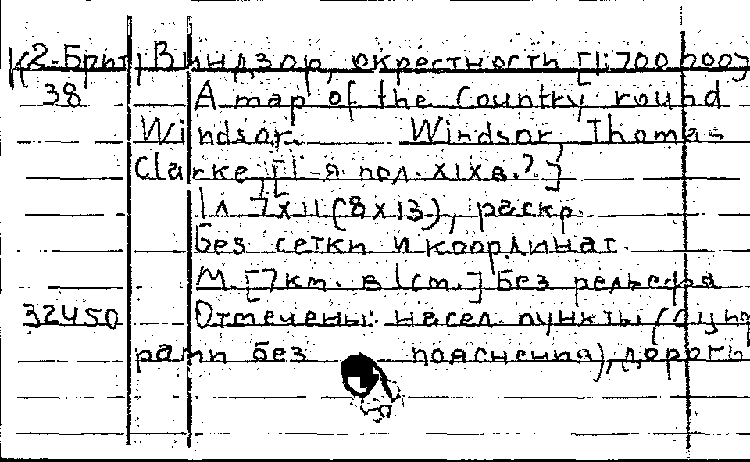 К2-Брит, Виндзор, окрестности [1:700 000]
38 A map of the Country round
Windsor. Windsor, Thomas
Clarke, [1-я пол. XIX в.?]
1л 7х11 (8х13), раскр.
Без сетки и координат.
М. [7км. в 1см.] Без рельефа
32450 Отмечены: насел. пункты (
без пояснения), дороги